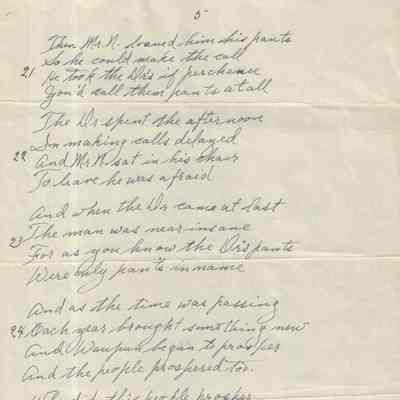 5
Then Mr. N. loaned him his pants
So he could make the call
21 He took the Dr's if perchance
You'd call them pants at all
The Dr spent the afternoon
In making calls delayed
22 And Mr N sat in his chair
To leave he was afraid
And when the Dr came at last
23 The man was near insane
For as you know the Dr's pants
Were only "pants" in name
And as the time was passing
24 Each year brought something new
And Waupun began to prosper
And the people prospered too.
Why did this people prosper